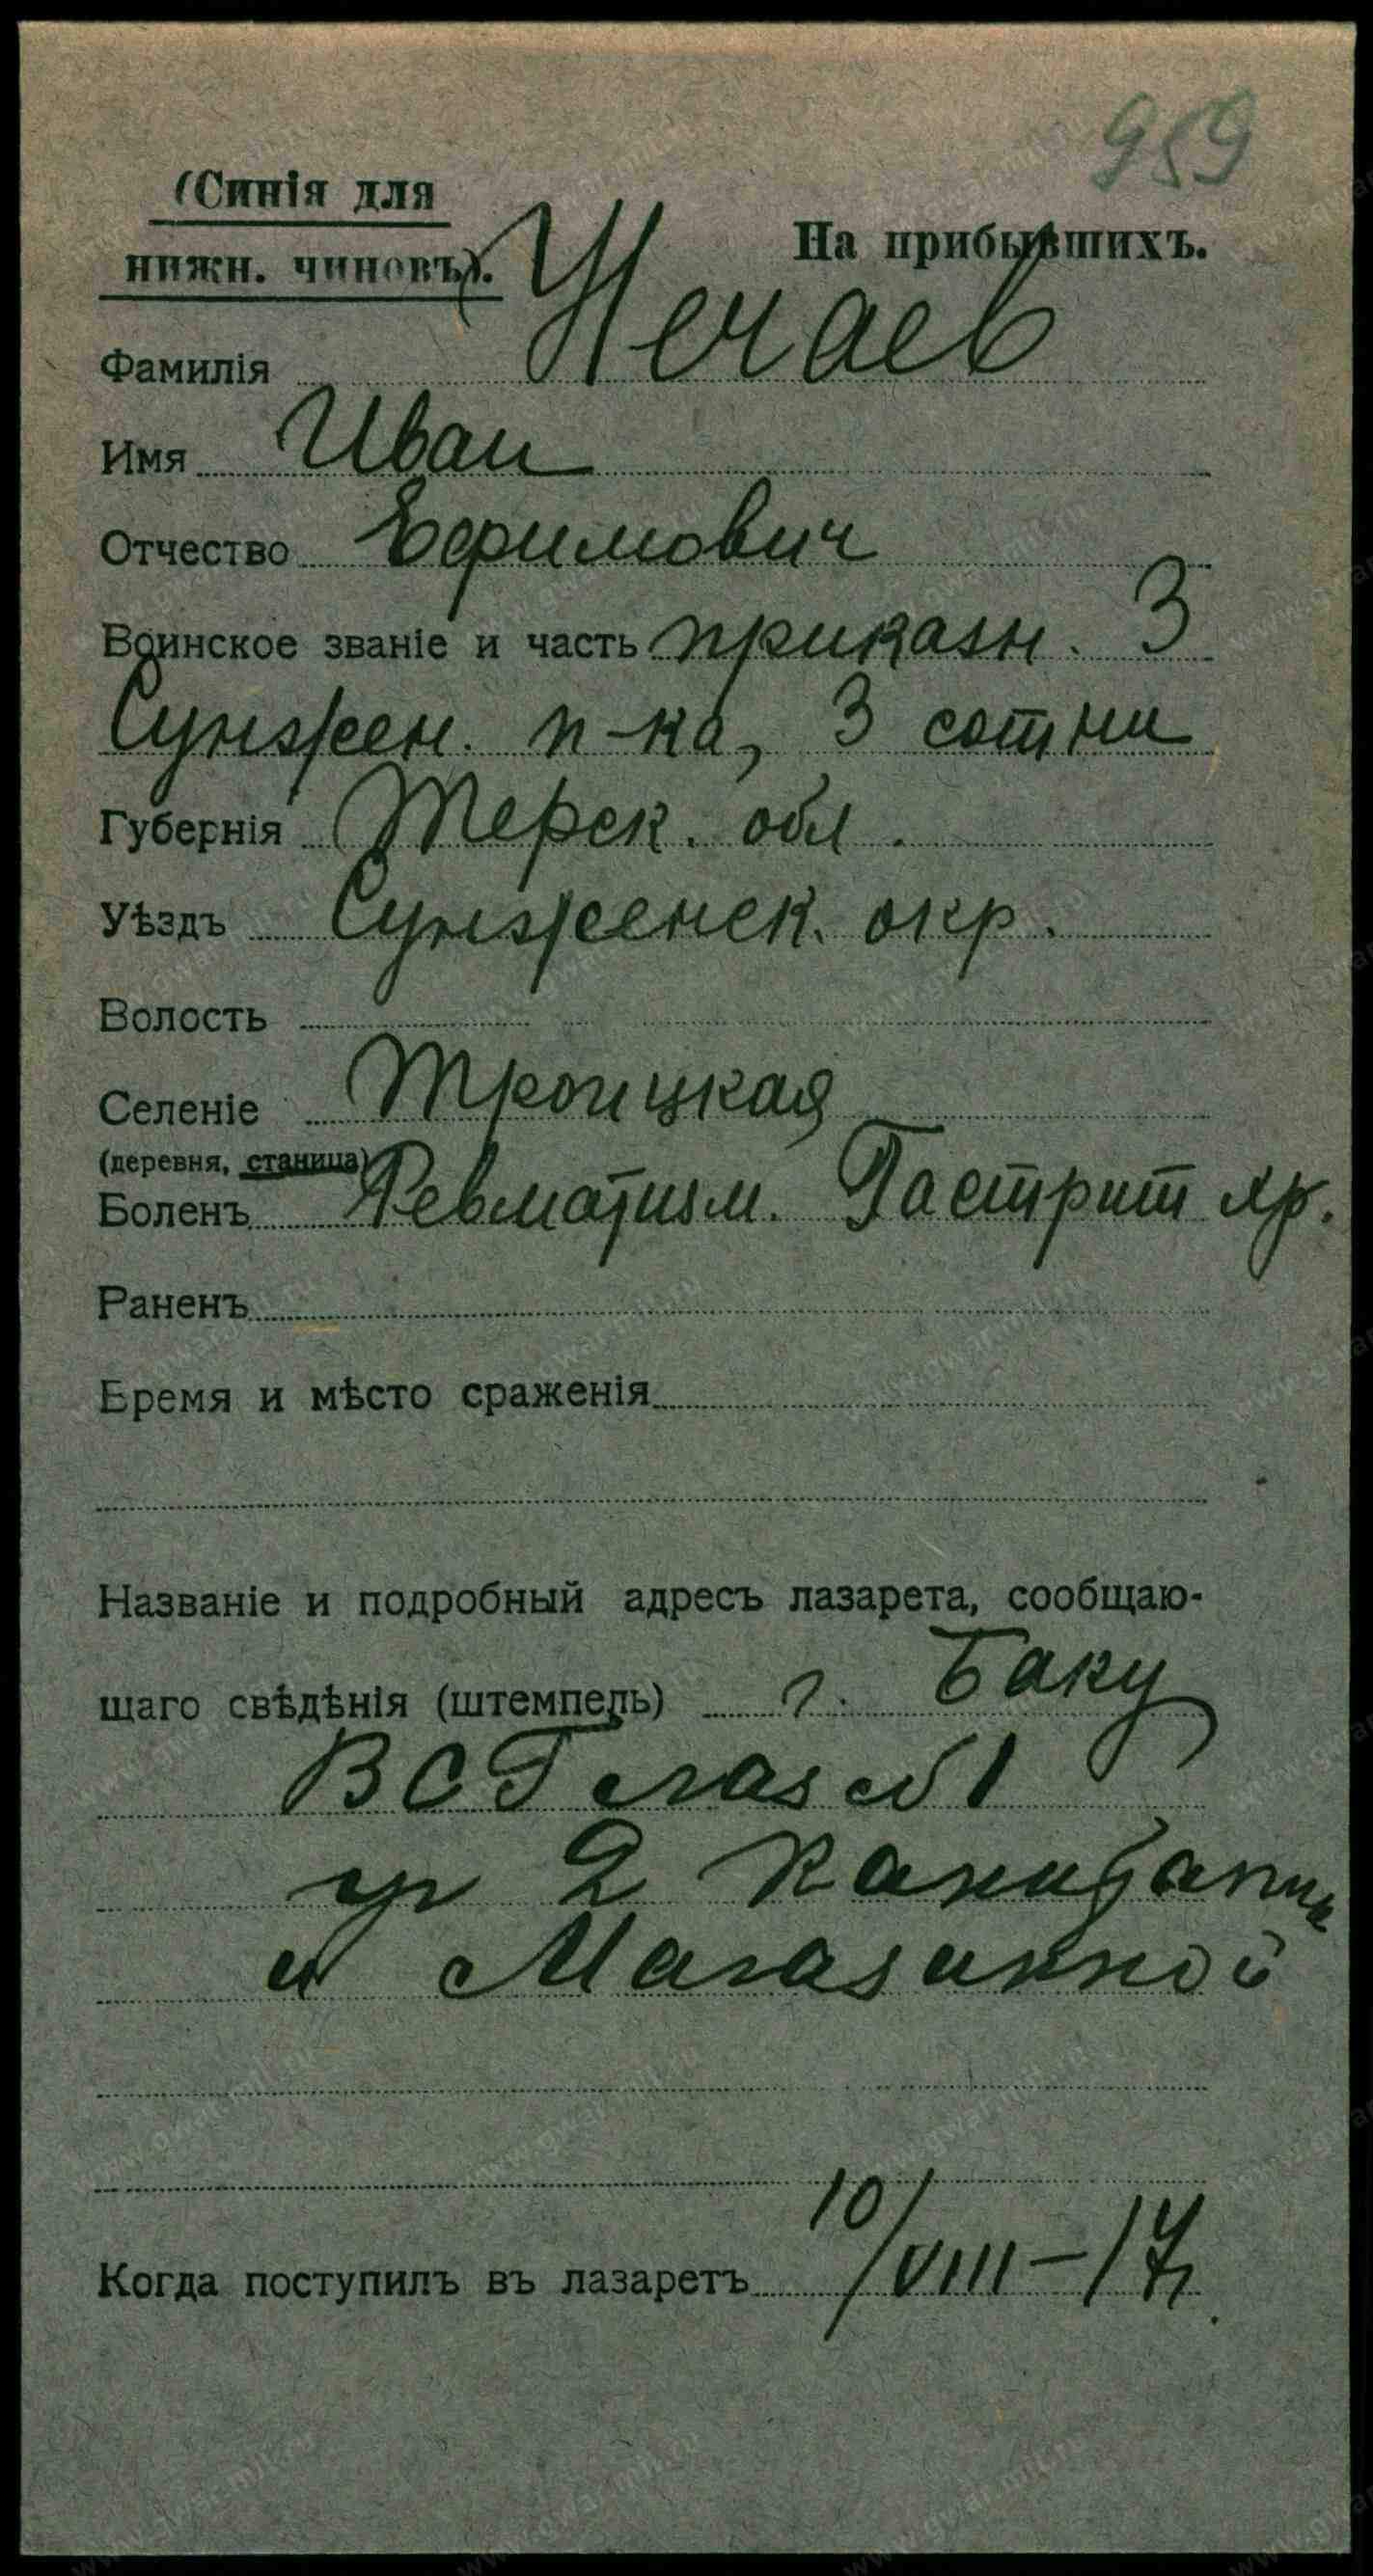 959
(Синія для
нижн. чиновъ).
На прибывшихъ.
Фамилія Нечаев
Имя Иван
Отчество Ефимович
Воинское званіе и часть приказн. 3
Сунжен. п-ка, 3 сотни
Губернія Терск. обл.
Уѣздъ Сунженск. окр.
Волость
Селеніе Троицкая
(деревня, станица)
Боленъ Ревматизм. Гастрит хр.
Раненъ
Время и мѣсто сраженія
Названіе и подробный адресъ лазарета, сообщаю-
щаго свѣдѣнія (штемпель) г. Баку
ВСГ лаз №1
уг 2
и Магазинной
Когда поступилъ въ лазаретъ 10/VIII-17